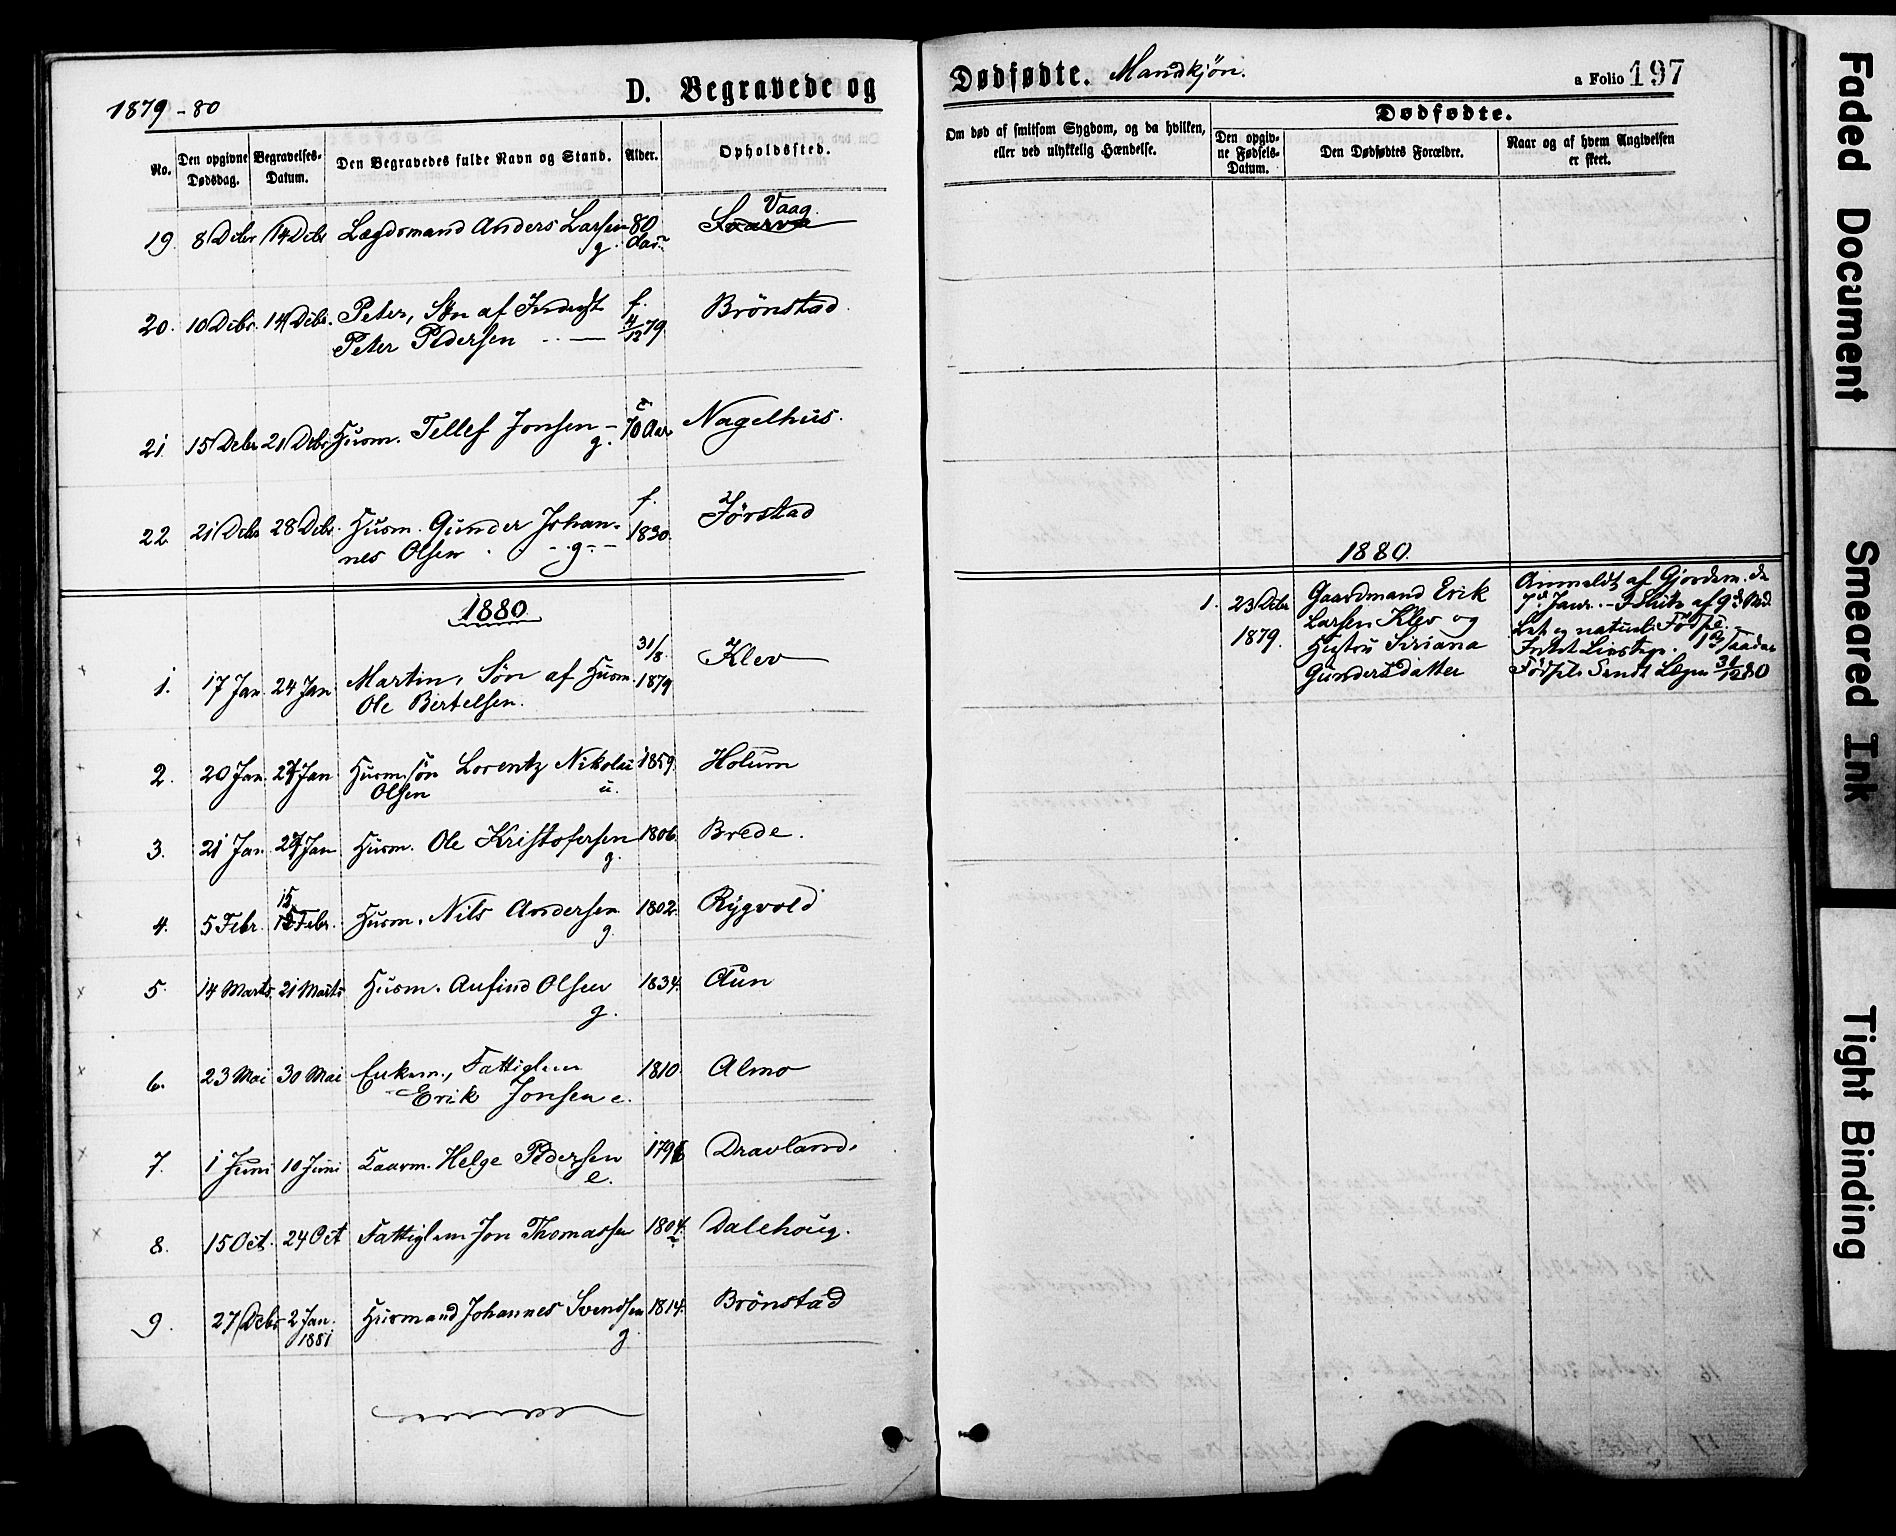 1879-80
D. Begravede og
No.
Den opgivne Dødsdag.
Begravelses-Datum.
Den Begravedes fulde Navn og Stand.
Alder.
Opholdssted.
19. 8 Debr 14 Debr Lægdsmand Anders Larsen 80 Vaag
g. Aar
20. 10 Debr. 14 Debr. Peter, Søn af f. Brönstad
Peter Pedersen 4/12 79
21. 15 Debr 21 Debr Husm. Tellef Jonsen 70 Aar Nagelhus.
g.
22 21 Debr 28 Debr. Husm. Gunder Johan- f. Förstad
nes Olsen g. 1830.
1880.
1. 17 Jan 24 Jan Martin, Søn af Husm. 31/8. 1879 Klev
Ole Bertelsen.
2. 20 Jan Jan Husmsøn Lorentz Nikolai 1859. Holum
Olsen u.
3. 21 Jan Jan Husm. Ole Kristofersen 1806. Brede.
g.
4. 5 Febr. 15 Febr. Husm. Nils Andersen 1802. Rygvold
g.
5. 14 Marts 21 Marts Husm. Anfind Olsen 1834. Aun
g.
6. 23 Mai 30 Mai Enkem., Fattiglem 1810 Almo
Erik Jonsen e.
7. 1 Juni 10 Juni Kaarm. Helge Pedersen Dravland.
e.
8. 15 Oct. 24 Oct Fattiglem Jon Thomassen 1804. Dalehoug.
9. 27 Debr 2 Jan. Husmand Johannes Svendsen 1814. Brönstad
1881 g.
Dødfødte. Mandkjön.
a Folio 197
Om død af smitsom Sygdom, og da hvilken,
eller ved ulykkelig Hændelse.
Dødfødte.
Den opgiv-
ne Fødsels-
Datum.
Den Dødfødtes Forældre.
Naar og af hvem Angivelsen
er skeet.
1880.
1. 23 Debr
1879.
Gaardmand Erik
Larsen Klev og
Hustru Siriana
Gundersdatter
Anmeldt af Gjordem. de
7de Janr.
Fødsel. Sendt Lægen 31/12 80
Faded Document
Smeared Ink
Tight Binding